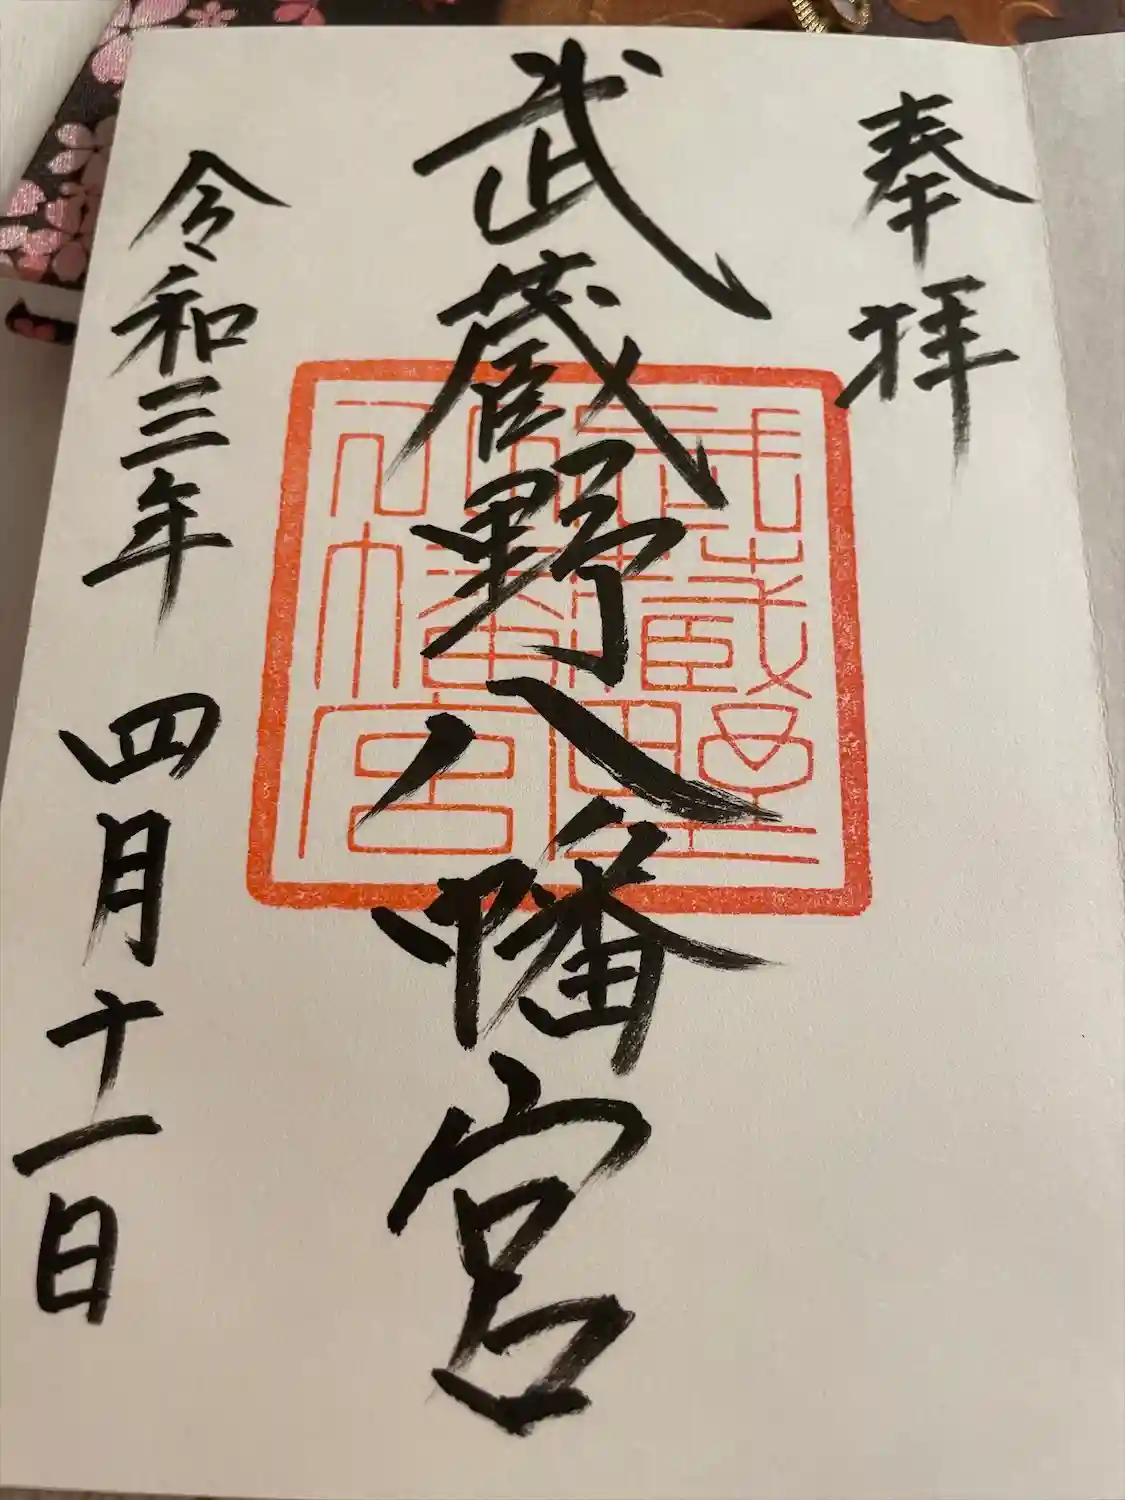 奉拝
武蔵野八幡宮
令和三年 四月十一日
武蔵野八幡宮